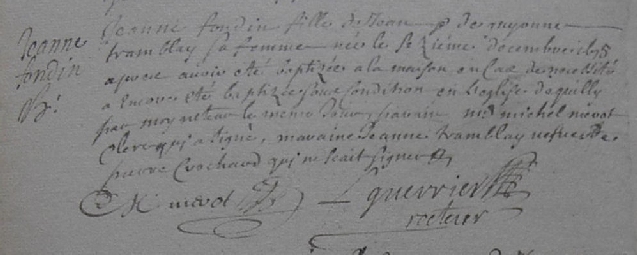 Jeanne
fondin
Jeanne fondin fille de Jean et de
tramblay sa femme née le decembre
apres avoir eté baptizée a la maison en cas de necessité
a encore eté baptizée sous condition en leglise
par moy le meme jour parain michel mivot
clerc qui a signé, maraine Jeanne tramblay vefve de
pierre Crochard qui ne scait signer
M mivot L guerrier